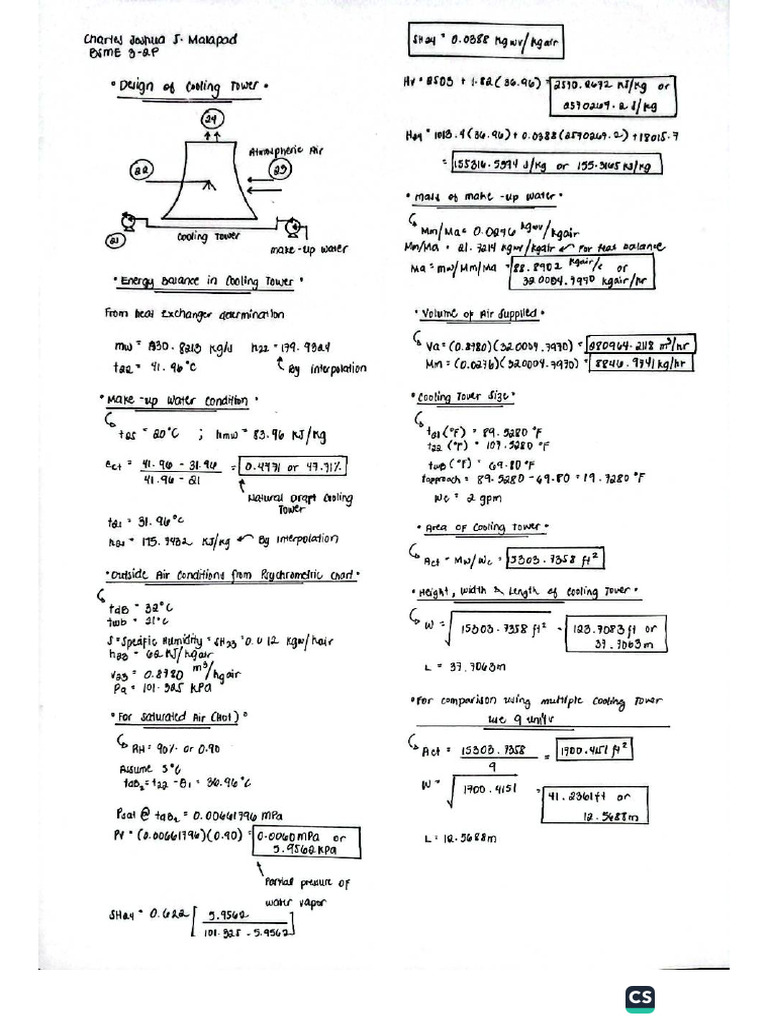 Charles Joshua S. Malapad
BSME 3-2P
• Design of Cooling Tower •
24
Atmospheric Air
22
23
21
Cooling Tower
make-up water
• Energy Balance in Cooling Tower •
From heat exchanger determination
h22 = 179.9324
t22 = 41.96 °C
By interpolation
• Make-up Water Condition •
t25 = 20°C ; hmw = 83.96 KJ/Kg
ect = 41.96 - 31.96 / 41.96 - 21 = 0.4771 or 47.71%
Natural Draft Cooling
Tower
t21 = 31.96 °C
By interpolation
• Outside Air Conditions from Psychrometric Chart •
tdb = 32°C
twb = 21°C
S = Specific Humidity = SH23 = 0.012
h23 = 62 KJ/kgair
v23 = 0.8780 m³/kgair
Pa = 101.325 KPa
• For Saturated Air (Hot) •
RH = 90% or 0.90
Assume 5°C
= 36.96 °C
= 0.00661796 MPa
Pv = (0.00661796)(0.90) = 0.0060 MPa or
5.9562 KPa
Partial pressure of
water vapor
SH24 = 0.622 [ 5.9562 / 101.325 - 5.9562 ]
SH24 = 0.0388 Kgwv/Kgair
Hv = 2503 + 1.82(36.96) = 2570.2672 KJ/kg or
2570267.2 J/kg
+ 0.0388(2570267.2) + 18015.7
= 155316.5574 J/kg or 155.3165 KJ/kg
• Mass of make-up water •
Mm/Ma = 0.0276 kgwv/kgair
Mm/Ma = 21.7214 kgwv/kgair For heat balance
Ma = mw/Mm/Ma = 88.8902 kgair/s or
320004.7970 kgair/hr
• Volume of Air Supplied •
Va = (0.8780)(320004.7970) = 280964.2118 m³/hr
(320004.7970) = kg/hr
• Cooling Tower Size •
t21 (°F) = 89.5280 °F
t22 (°F) = 107.5280 °F
twb (°F) = 69.80 °F
tapproach = 89.5280 - 69.80 = 19.7280 °F
Wc = 2 gpm
• Area of Cooling Tower •
Act = Mw/Wc = 15303.7358 ft²
• Height, Width & Length of Cooling Tower •
W = √15303.7358 ft² = 123.7083 ft or
37.7063 m
L = 37.7063m
• For comparison using multiple cooling tower
use 9 units
Act = 15303.7358 / 9 = 1700.4151 ft²
W = √1700.4151 = 41.2361 ft or
12.5688 m
L = 12.5688m
CS